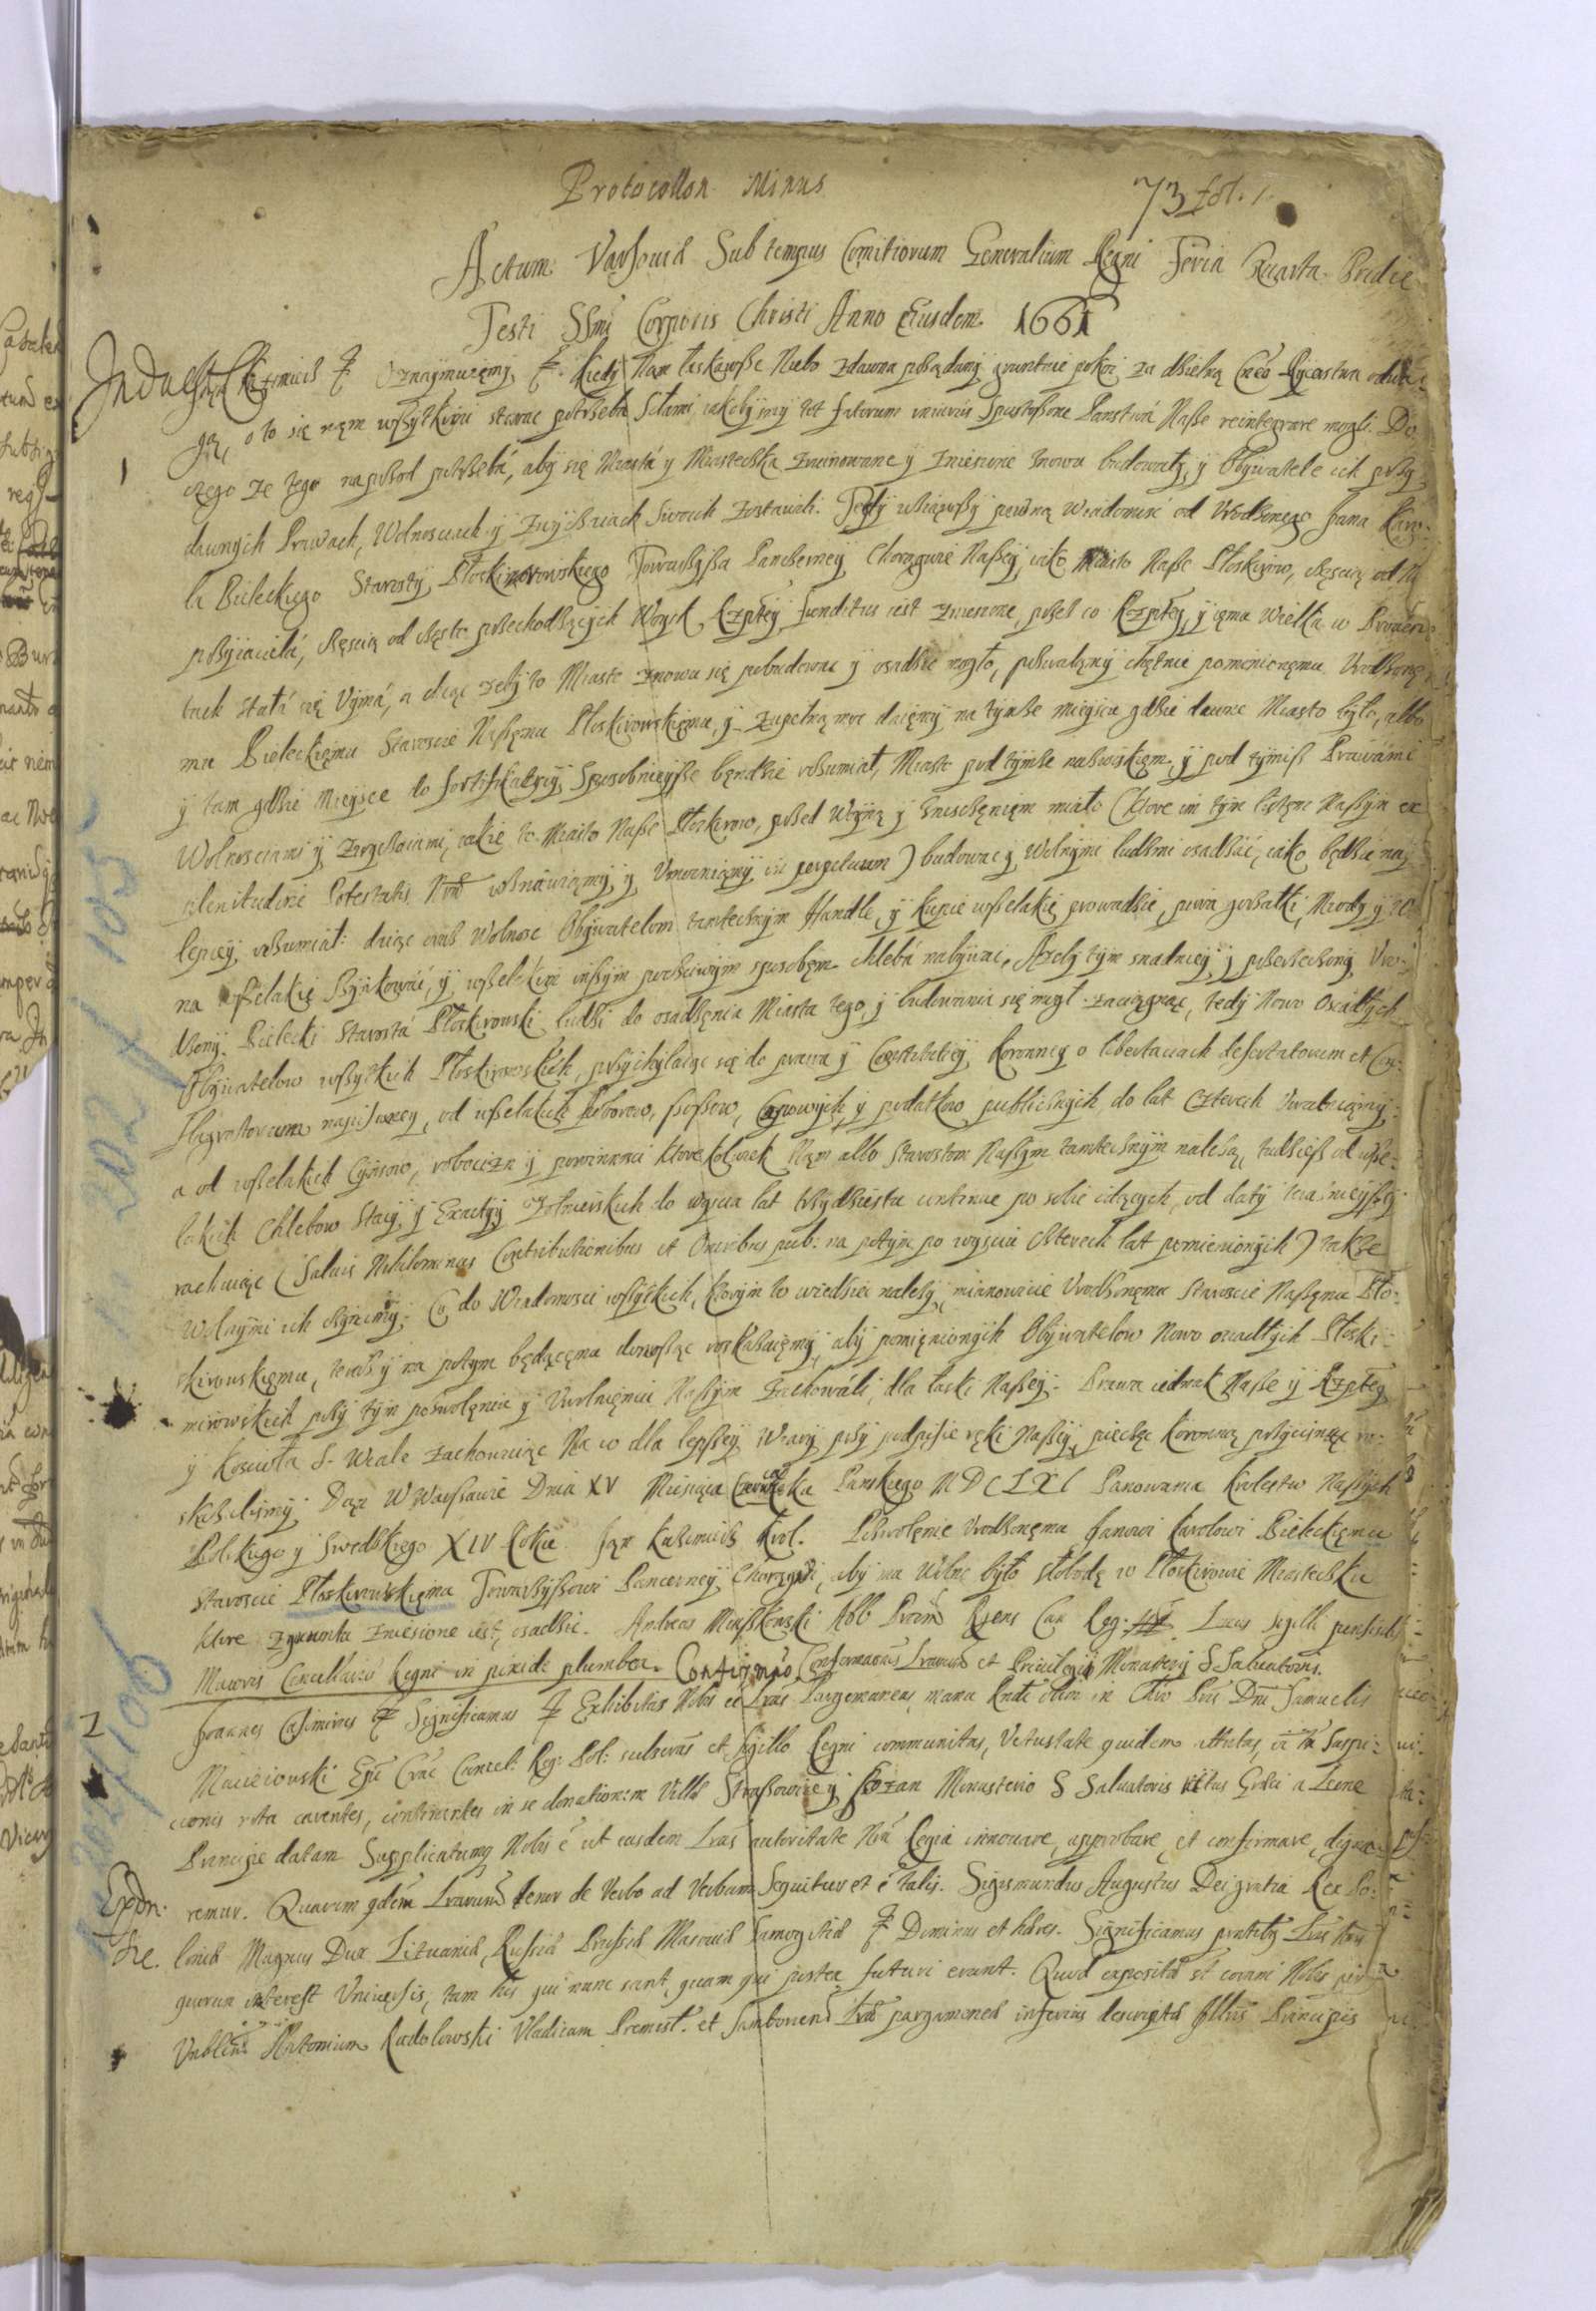 Protocollon Minus
73 fol. 1.
Actum Varsoviæ Sub tempus Comitiorum Generalium Regni Feria Quarta Pridie
Festi SSmi Corporis Christi Anno Eiusdem 1661
Jan Kazimierz Oznaymuięmy Kiedy Nam łaskawsze Niebo zdawna pożądany gruntnie pokoi za dzielną Rycerstwa odwa-
gą, o to się nąm wszytkimi starac potrzeba Siłami iakobysmy tot fatorum iniuriis Spustoszone Panstwá Nasze reintegrare mogli. Do
1
czego ze tego naprzod potrzebá, aby się Miastá y Miasteczka zruinowane y zniesione znowu budowały, y Obywatele ich przy
dawnych Prawach, Wolnosciach y Zwyczaiach Swoich zostawali. Tedy wziąwszy pewną wiadomosc od Urodzonego Jana Karo-
la Bieleckiego Starosty Płoskirowskiego Towarzysza Pancerney Chorągwie Naszey, iako Miasto Nasze Płoskirow, częscią od Nie
przyiacielá, częscią od często przechodzących Woysk Rzptey funditus iest zniesione, przez co Rzptey y sąma Wielka w Prowen-
tach stałá się Uymá, a chcąc zeby to Miasto znowu się pobudowac y osadzic mogło, pozwalamy chętnie pomienionęmu Urodzonę-
mu Bieleckięmu Staroscie Naszęmu Płoskirowskięmu, y zupełną moc daięmy na tymze mieyscu gdzie dawne Miasto było, albo
y tam gdzie Mieysce do fortifikatiey Sposobnieysze będzie rozumiał, Miasto pod tymze nazwiskiem, y pod tymisz Prawámi
Wolnosciami y Zwyczaiami, iakie to Miasto Nasze Płoskirow, przed Woyną y zniszczęnięm miało (ktore im tym listęm Naszym ex
plenitudine Potestatis Nræ wznáwiamy y Umacniamy in perpetuum) budowac y Wolnymi ludzmi osadzać, iako będzie nay-
lepiey rozumiał: daiąc oraz Wolnosc Obywatelom tamtecznym Handle, y kupie wszelakie prowadzic, piwa gorzałki, Miody y Wi-
na wszelakie Szynkowáć, y wszelakim inszym poczciwym sposobęm chlebá nabywac. A zeby tym snadniey y pzerzeczony Uro-
dzony Bielecki Starostá Płoskirowski ludzi do osadzęnia Miasta tego, y budowania się mogł zaciągnąc, tedy Nowo Osiadłych
Obywatelow wszytkich Płoskirowskich, przychylaiąc się do prawa y Constitutiey Koronney o libertaciach desertatorum et Con-
flagratorum napisaney, od wszelakich Poborow, szoszow, Czopowych y podatkow publicznych do lat Czterech Uwalniamy:
a od wszelakich Czynszow, robocizn y powinnosci ktorekolwiek Nam albo Starostom Naszym tamtecznym nalezą, tudziesz od wsze-
lakich Chlebow Stacij y Exactyi Zołnierskich do wyscia lat trzydziestu continue po sobie idących, od daty teráznieyszey
rachuiąc (Salvis Nihilominus Contributionibus et Oneribus pub: na potym po wysciu Czterech lat pomienionych) takze
Wolnymi ich czynimy: Co do Wiadomosci wszytkich, ktorym to wiedziec nalezy, mianowicie Urodzonęmu Staroscie Naszęmu Pło-
skirowskięmu, teraz y na potym będącęmu donosząc roskazuięmy, aby pomięnionych Obywatelow Nowo osiadłych Płoski-
rowskich przy tym pozwolęniu y Uwolnięniu Naszym zachowáli, dla łaski Naszey. Prawa iednak Nasze y Rzptey
y Koscioła S. Wcale zachowuiąc Na co dla lepszey Wiary przy podpisie ręki Naszey, pieczęc koronną przycisnąc ro-
skazalismy. Dan W Warszawie Dnia XV Miesiąca Czerwca Roku Panskiego MDCLXI Panowania Krolestw Naszych
Polskiego y Swedzkiego XIV Roku. Jan Kazimierz Krol. Pozwolęnie Urodzonęmu Janowi Karolowi Bieleckięmu
Staroscie Płoskirowskięmu Towarzyszowi Pancerney Chorągwi, aby mu Wolno było słobodę w Płoskirowie Miasteczku
ktore zgruntu zniesione iest, osadzic. Andreas Miaskowski Abb Regens Can Reg: Locus sigilli pensilis
Maioris Cancellariæ Regni in pixide plumbea. Confirmaõ Confirmaõnis Lrarum et Privilegij Monasterij S Salvatoris.
2
Joannes Casimirus Significamus Exhibitas Nobis ee Lras Pargameneas, manu Rndi olim in Chro Pris Dni Samuelis
Macieiowski Epi Crac Cancel: Reg: Pol: subscras et Sigillo Regni communitas, Vetustate quidem attritas, Suspi-
cionis nota carentes, continentes in se donationem Villæ Straszowice y Sozan Monasterio S Salvatoris ritus Græci a Leone
Principe datam Supplicatumq Nobis é ut easdem Lras autoritate Nra Regia innovare, approbare, et confirmare, digna-
remur. Quarum qdem Lrarum tenor de Verbo ad Verbum Sequitur et é talis. Sigismundus Augustus Dei gratia Rex Po-
loniæ Magnus Dux Lituaniæ, Russiæ Prussiæ Masoviæ Samogitiæ Dominus et hæres. Significamus pntibq Lris Nris
quorum interest Universis, tam his qui nunc sunt, quam qui postea futuri erunt. Quod expositæ st coram Nobis per
Vnblem Antonium Radolowski Vladicam Premisl. et Samborien Lræ pargameneæ inferius descriptæ Illris Principis